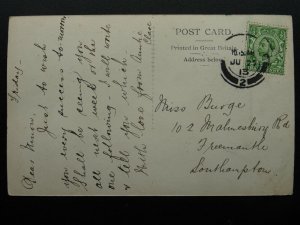 Friday.
Dear Minnie,
Just to wish
you every success to-morrow
I shall be seeing you all
next week or the
one following. I will write
& tell you which.
With love from Auntie
Clare
POST CARD.
Printed in Great Britain.
Address below
Miss Burge
102 Malmesbury Rd
Freemantle
Southampton
JU
13
2